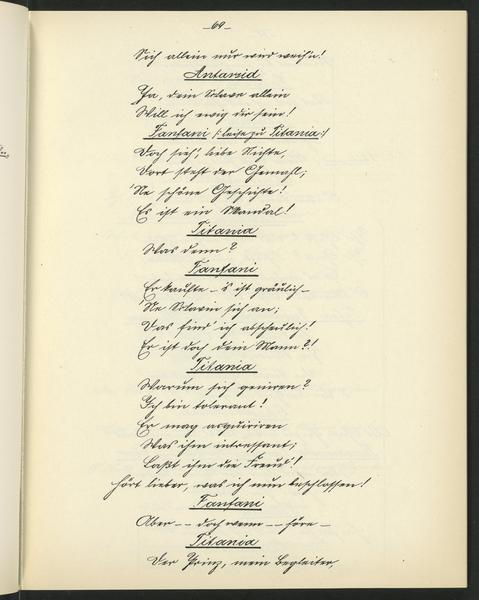 - 69 -
Dich allein nur wird weih'n!
Antarsid
Ja, dein Sklave allein
Will ich ewig dir sein!
Fanfani /: leise zu Titania :/
Doch sieh', liebe Nichte,
Dort steht der Gemahl;
'Ne schöne Geschichte!
Es ist ein Skandal!
Titania
Was denn?
Fanfani
Er kaufte – 's ist gräulich –
'Ne Sklavin sich an;
Das find' ich abscheulich!
Er ist doch dein Mann?!
Titania
Warum sich geniren?
Ich bin tolerant!
Er mag acquiriren
Was ihm intressant;
Laßt ihm die Freud'!
Hört lieber, was ich nun beschlossen!
Fanfani
Aber – – doch wenn – – höre –
Titania
Der Prinz, mein Begleiter,